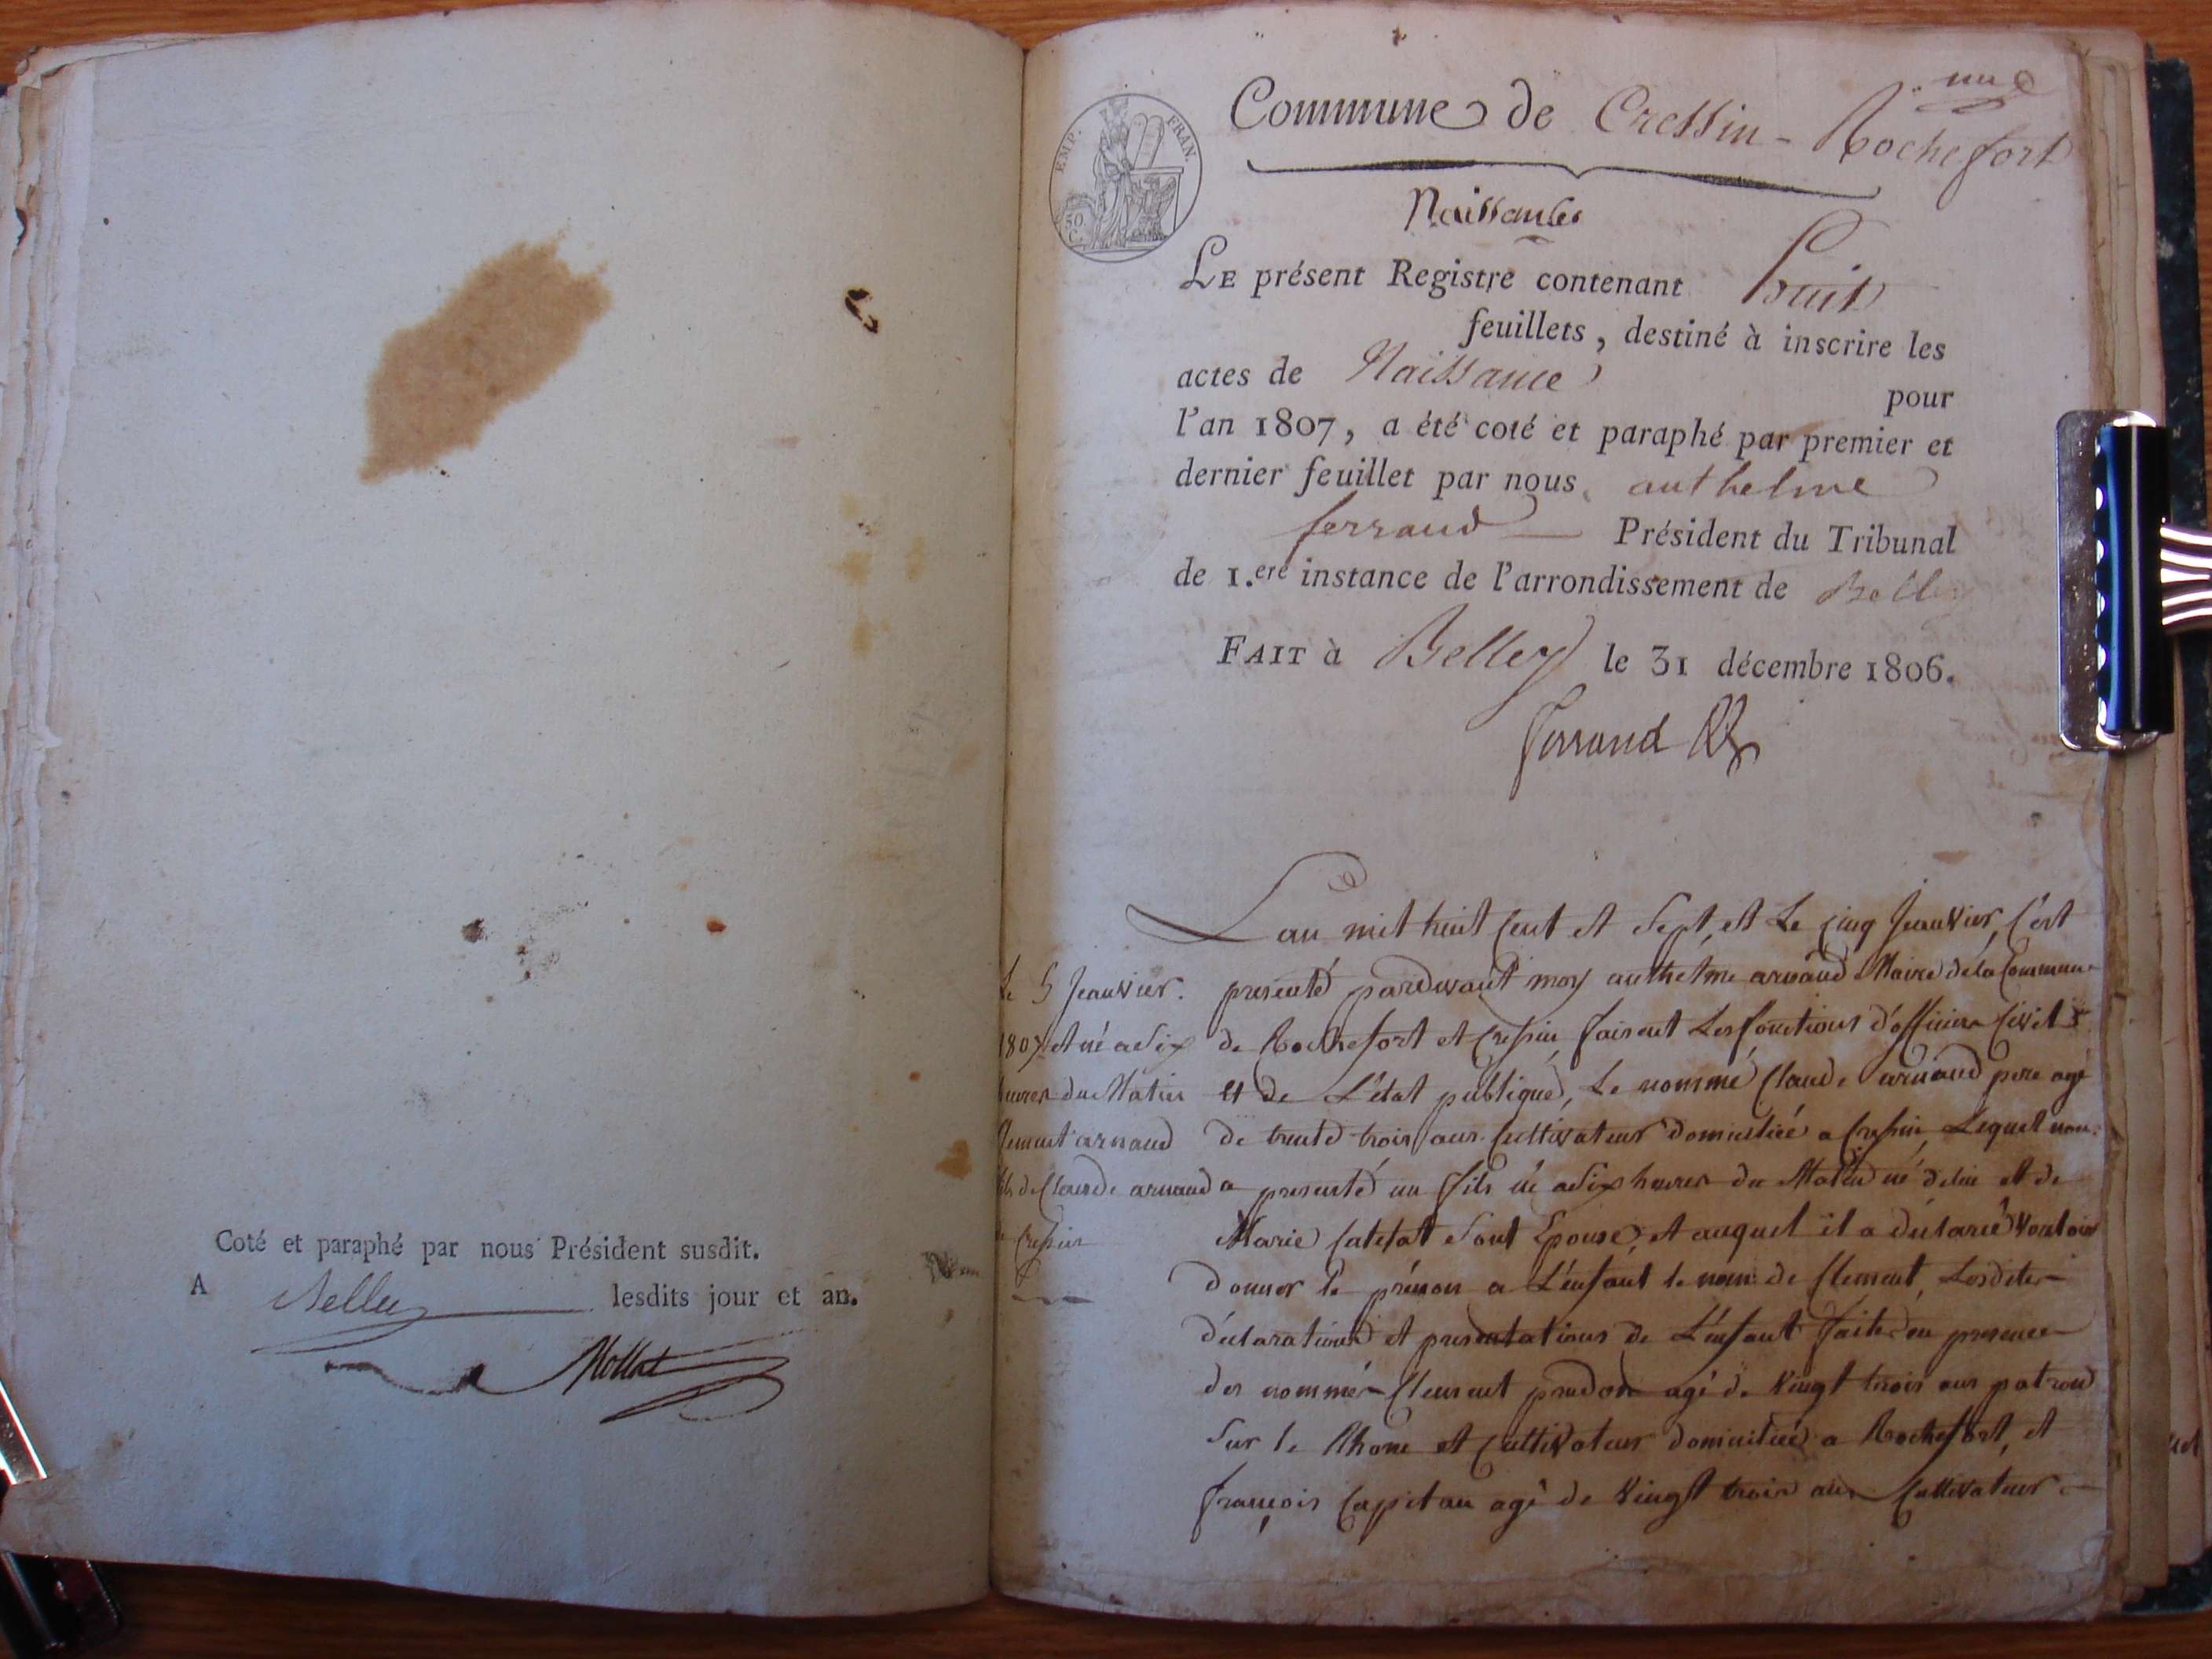 Coté et paraphé par nous Président susdit.
A Belley lesdits jour et an.
Mollet
une
EMP. FRAN.
50 C.
Commune de Cressin - Rochefort
Naissances
LE présent Registre contenant huit
feuillets, destiné à inscrire les
actes de Naissance
pour
l'an 1807, a été coté et paraphé par premier et
dernier feuillet par nous, anthelme
ferrand Président du Tribunal
de 1.ere instance de l'arrondissement de Belley
FAIT à Belley le 31 décembre 1806.
ferrand
Lan mil huit Cent et Sept, et Le cinq Jeanvier, C'est
presenté pardevant moy anthelme arnaud Maire de la Commune
de Rochefort et Cressin, faisent Les fonctions d'officier Civil
et de L'état publique, Le nommé Claude arnaud pere agé
de trente trois ans Cultivateur domicilié a Cressin, Lequel nou:
a presenté un fils né a dix heures du Matin né de lui et de
Marie Catelat Sont Epouse, et auquel il a déclaré Vouloir
donner le prénon a L'enfant le nom de Clement, Lesdites
déclarations et presentations de L'enfant faite en presence
des nommés Clement prudon agé de Vingt trois ans patron
Sur le Rhone et Cultivateur domicilié a Rochefort, et
françois Capitan agé de Vingt trois ans Cultivateur
Le 5 Jeanvier.
1807 et né a dix
heures du Matin
Clement arnaud
fils de Claude arnaud
de Cressin